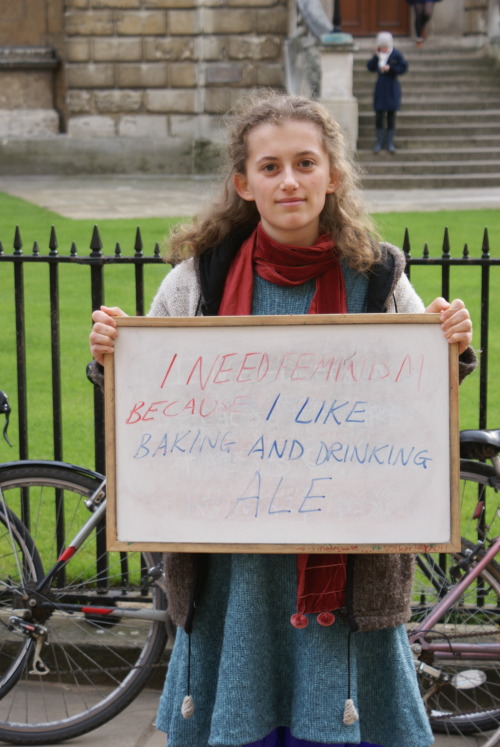 I NEED FEMINISM
BECAUSE I LIKE
BAKING AND DRINKING
ALE